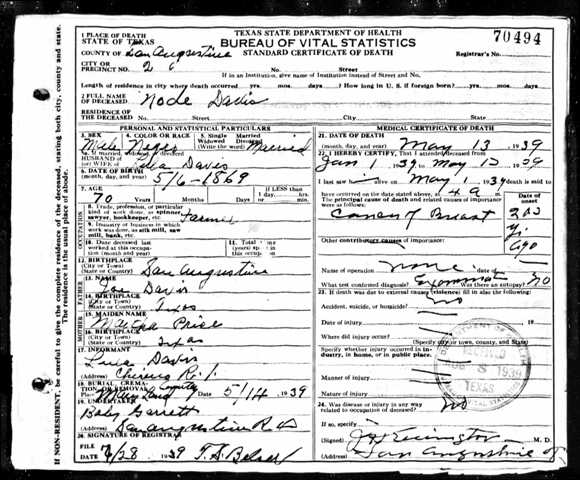 1 PLACE OF DEATH
STATE OF TEXAS
COUNTY OF San Augustine
CITY OR
PRECINCT NO. 2
TEXAS STATE DEPARTMENT OF HEALTH
BUREAU OF VITAL STATISTICS
STANDARD CERTIFICATE OF DEATH
70494
Registrar's No.
No. Street
If in an Institution, give name of Institution instead of Street and No.
Length of residence in city where death occurred yrs. mos. days. How long in U. S. if foreign born? yrs. mos. days
2 FULL NAME
OF DECEASED Node Davis
RESIDENCE OF
THE DECEASED No. Street City State
PERSONAL AND STATISTICAL PARTICULARS
3. SEX 4. COLOR OR RACE 5. Single Married
Widowed
Divorced
Male Negro Married
HUSBAND OF
or WIFE OF Davis
6. DATE OF BIRTH
(month, day, year) 5/6-1869
7. AGE IF LESS than
1 day,
70 Years Months Days hrs. min.
OCCUPATION
8. Trade, profession, or particular
kind of work done, as spinner,
sawyer, bookkeeper, etc. Farmer
9. Industry or business in which
work was done, as silk mill, saw
mill, bank, etc.
10. Date deceased last
worked at this
occupation (month and year)
11. Total time
(years) in
this occupation
12. BIRTHPLACE
(City or Town)
(State or Country) San Augustine
FATHER
13. NAME Joe Davis
14. BIRTHPLACE
(City or Town)
(State or Country) Texas
MOTHER
15. MAIDEN NAME Price
16. BIRTHPLACE
(City or Town)
(State or Country) Texas
17. INFORMANT Davis
(Address) Chireno Rt. 1
18. BURIAL, CREMATION OR REMOVAL
Place 5/14 1939
19. UNDERTAKER
Garrett
(Address) San Augustine
20. SIGNATURE OF REGISTRAR
FILE
7/28 1939 T. S.
MEDICAL CERTIFICATE OF DEATH
21. DATE OF DEATH
(month, day, year) May 13 1939
22. I HEREBY CERTIFY, That I attended deceased from
Jan 1 1939 to May 13 1939
I last saw alive on May 1 1939 death is said to
have occurred on the date stated above, at 4 a m.
The principal cause of death and related causes of importance
were as follows: Date of onset
Cancer of Breast 2 or 3
Yr.
Ago
Other contributory causes of importance:
Name of operation none date of
What test confirmed diagnosis? Was there an autopsy? no
23. If death was due to external causes (violence) fill in also the following:
Accident, suicide, or homicide? no
Date of injury 19
Where did injury occur?
(Specify city or town, county, and State)
Specify whether injury occurred in industry, in home, or in public place.
Manner of injury
Nature of injury
24. Was disease or injury in any way
related to occupation of deceased? no
If so, specify
(Signed) M. D.
(Address) San Augustine
DEPARTMENT OF HEALTH
RECEIVED
AUG 8 1939
TEXAS
VITAL STATISTICS
IF NON-RESIDENT, be careful to give the complete residence of the deceased, stating both city, county and state.
The residence is the usual place of abode.